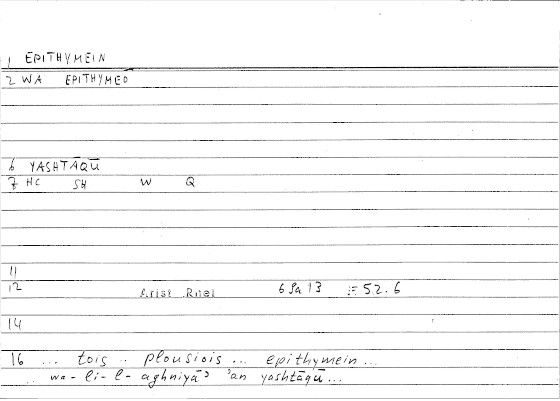 1 EPITHYMEIN
2 WA EPITHYMEO
6 YASHTĀQŪ
7 HC SH W Q
11
12 Arist Rhet 6 9a 13 = 52.6
14
16 ... tois .. plousiois ... epithymein ...
.. wa-li-l-aghniyāʾ ʾan yashtāqū ...